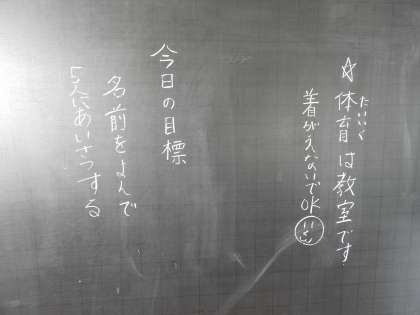 ☆体育は教室です
たいいく
着がえないでOK
今日の目標
名前をよんで
5人にあいさつする